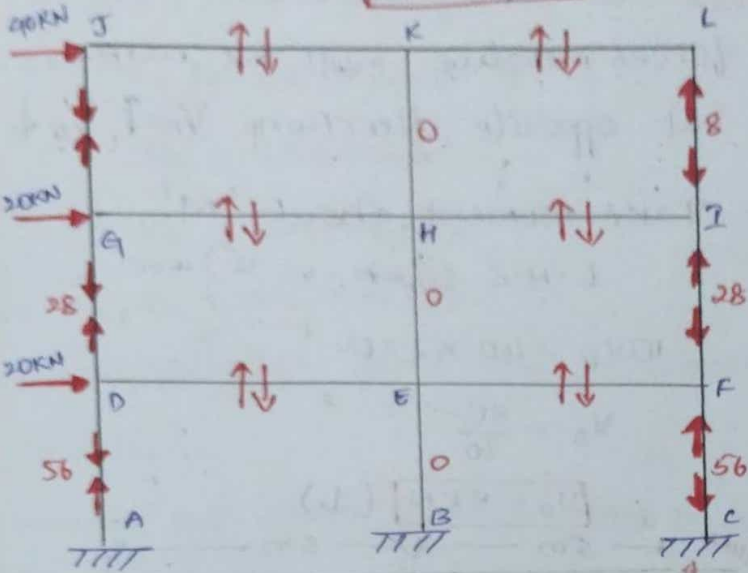 40KN J K L
0 8
20KN
G H I
28 0 28
20KN
D E F
56 0 56
A B C